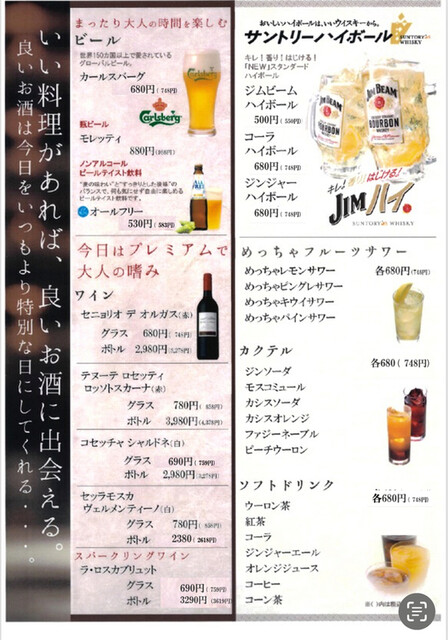 いい料理があれば、良いお酒に出会える。
良いお酒は今日をいつもより特別な日にしてくれる・・・。
まったり大人の時間を楽しむ
ビール
世界150カ国以上で愛されている
グローバルビール。
カールスバーグ
680円( 748円)
Carlsberg
瓶ビール
モレッティ
880円(968円)
ノンアルコール
ビールテイスト飲料
のバランスで、何も気にせず自由に楽しめる
ビールテイスト飲料です。
オールフリー
530円( 583円)
今日はプレミアムで
大人の嗜み
ワイン
セニョリオ デ オルガス(赤)
グラス 680円( 748円)
ボトル 2,980円(3,278円)
テヌーテ ロセッティ
ロッソトスカーナ(赤)
グラス 780円( 858円)
ボトル 3,980円(4,378円)
コセッチャ シャルドネ(白)
グラス 690円( 759円)
ボトル 2,980円(3,278円)
セッラモスカ
ヴェルメンティーノ(白)
グラス 780円( 858円)
ボトル 2380( 2618円)
スパークリングワイン
ラ・ロスカブリュット
グラス 690円( 759円)
ボトル 3290円(3619円)
おいしいハイボールは、いいウイスキーから。
サントリーハイボール
SUNTORY WHISKY
キレ!香り!はじける!
「NEW」スタンダード
ハイボール
ジムビーム
ハイボール
500円( 550円)
コーラ
ハイボール
680円( 748円)
ジンジャー
ハイボール
680円( 748円)
JIM BEAM
BOURBON
JIM BEAM
BOURBON
キレ!香り!はじける!
JIMハイ。
SUNTORY WHISKY
めっちゃフルーツサワー
めっちゃレモンサワー 各680円(748円)
めっちゃピングレサワー
めっちゃキウイサワー
めっちゃパインサワー
カクテル 各680( 748円)
ジンソーダ
モスコミュール
カシスソーダ
カシスオレンジ
ファジーネーブル
ピーチウーロン
ソフトドリンク 各680円( 748円)
ウーロン茶
紅茶
コーラ
ジンジャーエール
オレンジジュース
コーヒー
コーン茶
※( )内は税込